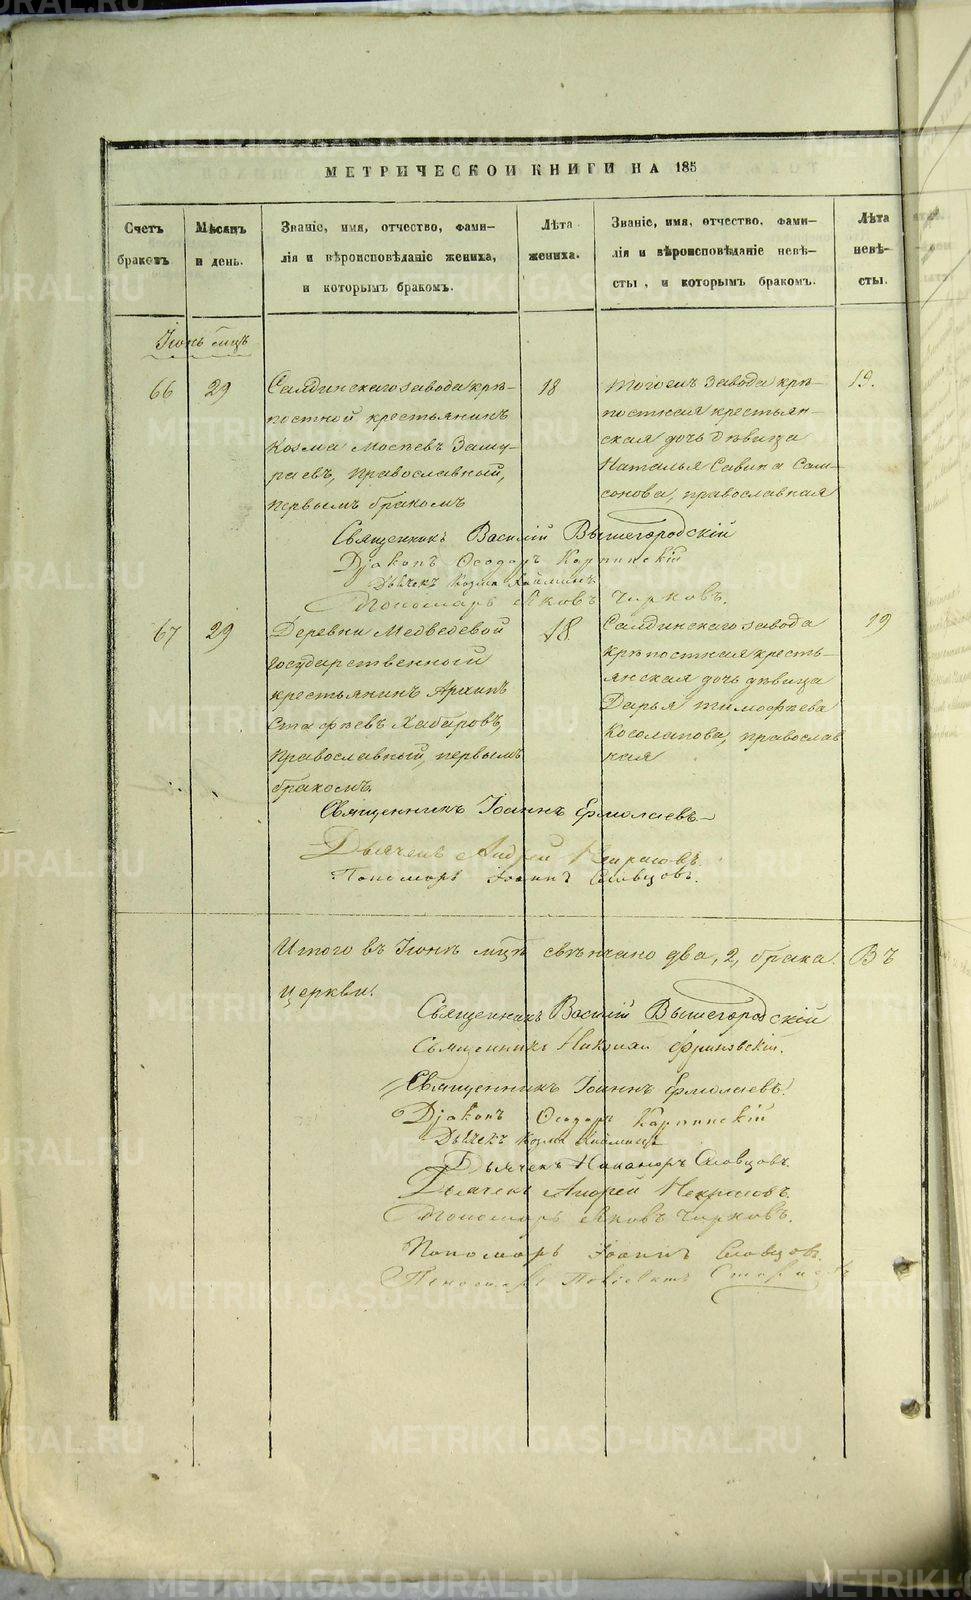 МЕТРИЧЕСКОЙ КНИГИ НА 185
Счетъ браковъ
Мѣсяцъ и день.
Званіе, имя, отчество, фами-
лія и вѣроисповѣданіе жениха,
и которымъ бракомъ.
Лѣта жениха.
Званіе, имя, отчество, фами-
лія и вѣроисповѣданіе невѣ-
сты, и которымъ бракомъ.
Лѣта невѣ-
сты.
Іюнь мцъ
66 29
Салдинскаго завода крѣ-
постной крестьянинъ
Козма Мосѣевъ Заму-
раевъ, православный,
первымъ бракомъ
18
тогожъ завода крѣ-
постная крестьян-
ская дочь дѣвица
Наталья Савина Сам-
сонова, православная
19.
Священникъ Василій Вышегородскій
Діаконъ Ѳеодоръ Карпинскій
Дьячекъ Козма
Пономарь Яковъ Чирковъ.
67 29
Деревни Медведевой
государственной
крестьянинъ Архипъ
Стафѣевъ Хабаровъ,
православный, первымъ
бракомъ.
18
Салдинскаго завода
крѣпостная кресть-
янская дочь дѣвица
Дарья Тимофѣева
Косолапова, православ
ная
19
Священникъ Іоаннъ Ермолаевъ
Дьячекъ Андрей Некрасовъ.
Пономарь Іоаннъ Словцовъ.
Итого въ Іюнѣ мцѣ свѣнчано два, 2, брака. Въ
церкви.
Священникъ Василій Вышегородскій
Священникъ Николай
Священникъ Іоаннъ Ермолаевъ.
Діаконъ Ѳеодоръ Карпинскій
Дьячекъ Козма
Дьячекъ Никаноръ Словцовъ.
Дьячекъ Андрей Некрасовъ.
Пономарь Яковъ Чирковъ.
Пономарь Іоаннъ Словцовъ.
Пономарь
METRIKI.GASO-URAL.RU